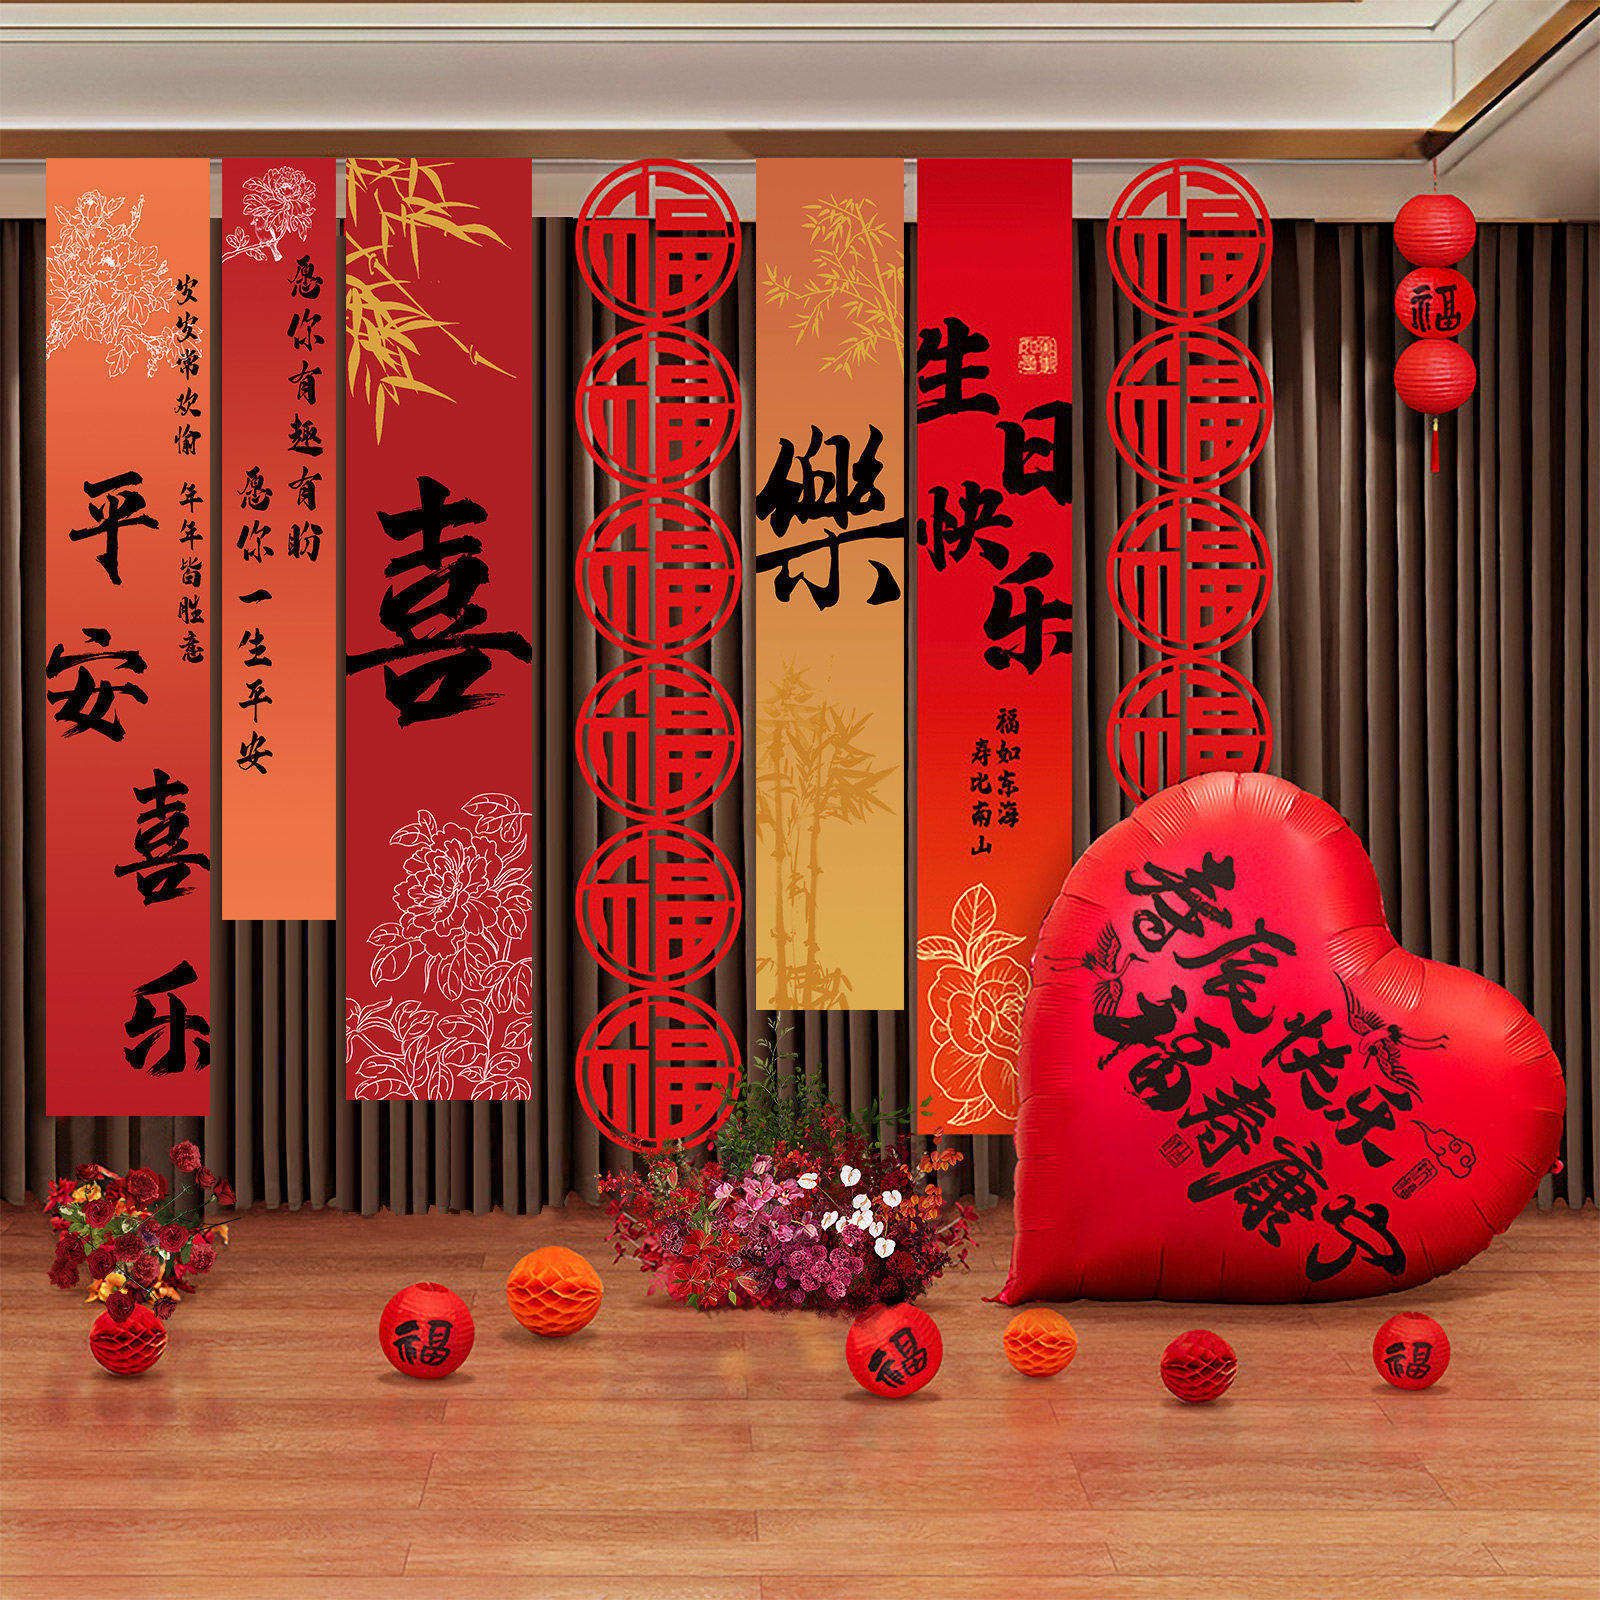 岁岁常欢愉 年年皆胜意
平安喜乐
愿你有趣有盼
愿你一生平安
喜
福
福
福
福
福
福
樂
生日快乐
福如东海
寿比南山
福
福
福
福
福
寿辰快乐
福寿康宁
福
福
福